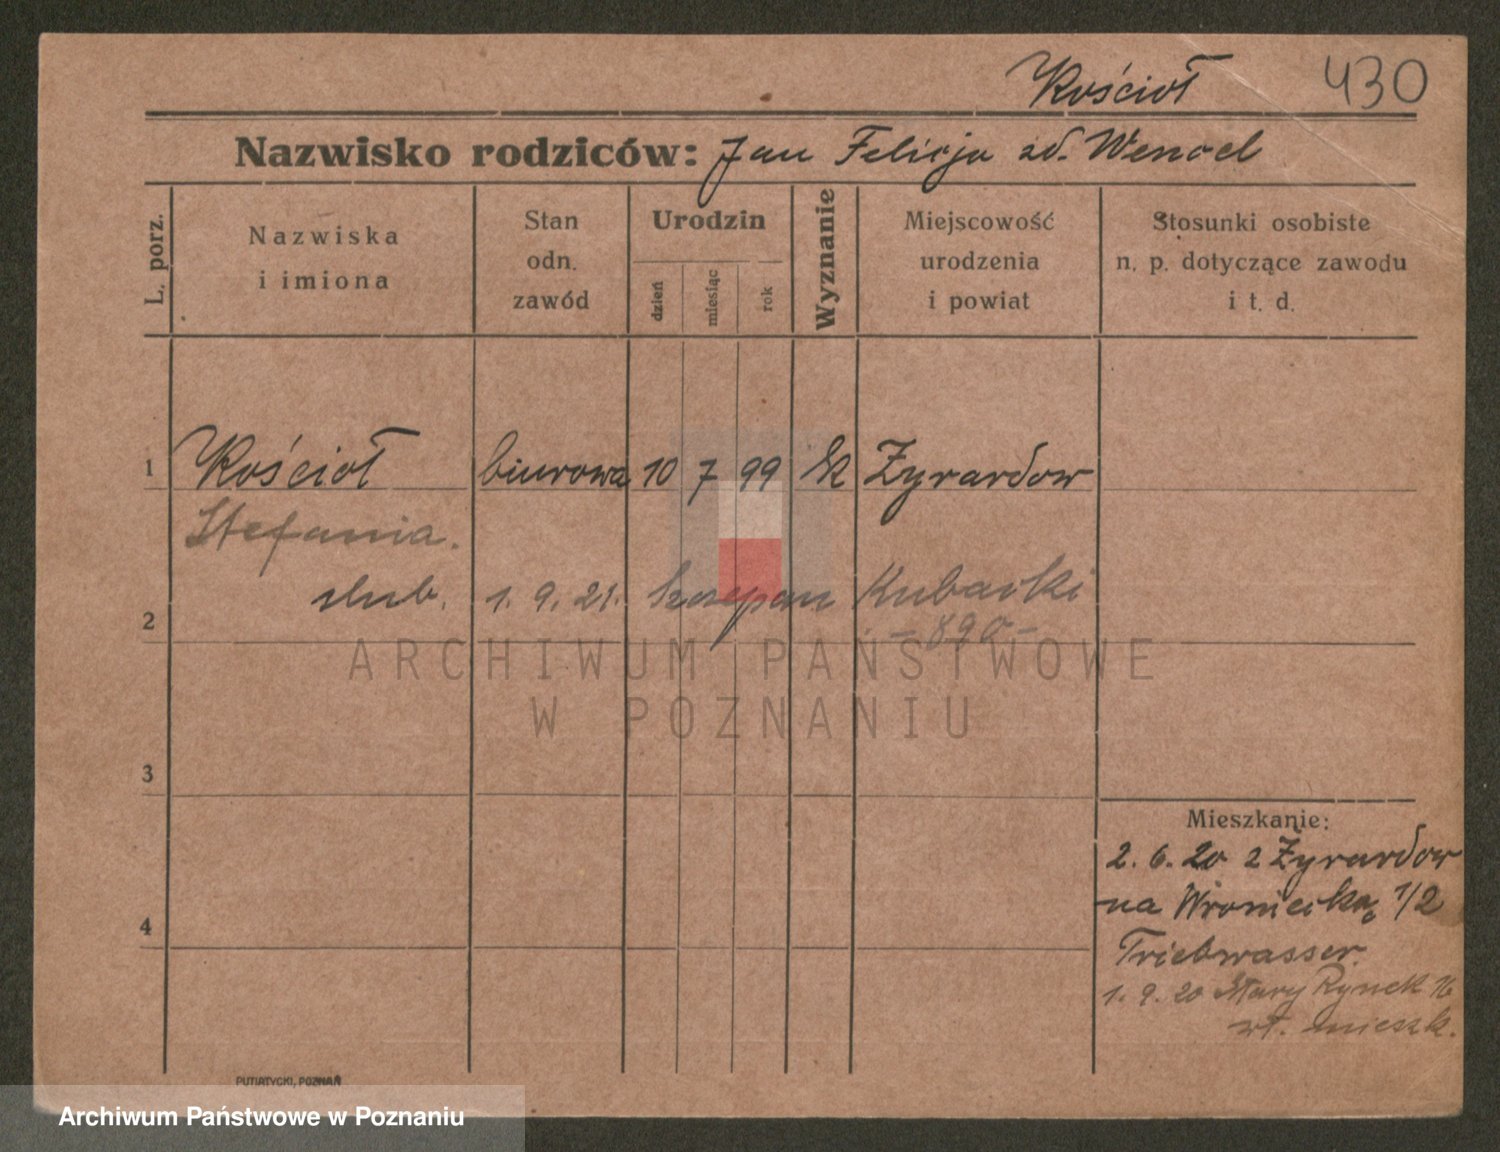 Kościoł 430
Nazwisko rodziców: Jan Felicja zd. Wencel
L. porz.
Nazwiska
i imiona
Stan
odn.
zawód
Urodzin
dzień
miesiąc
rok
Wyznanie
Miejscowość
urodzenia
i powiat
Stosunki osobiste
n. p. dotyczące zawodu
i t. d.
1 Kościoł biurowa 10 7 99 rk Żyrardow
Stefania.
2 slub. 1. 9. 21. Szczepan Kubacki
- 890 -
ARCHIWUM PAŃSTWOWE
W POZNANIU
3
Mieszkanie:
2. 6. 20 z Żyrardow
na Wroniecką 1/2
4
Triebwasser.
1. 9. 20 Stary Rynek 76
wł. mieszk.
PUTIATYCKI, POZNAŃ
Archiwum Państwowe w Poznaniu